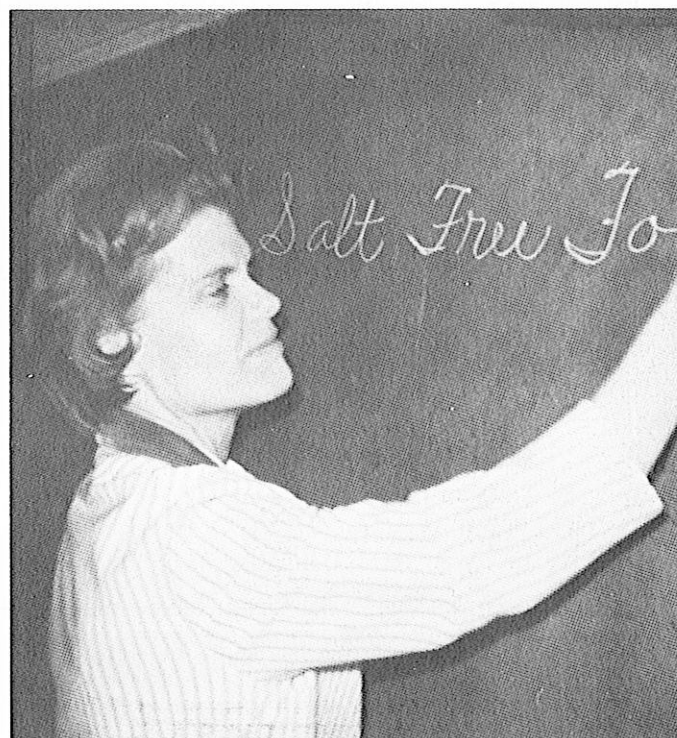 Salt Free Fo